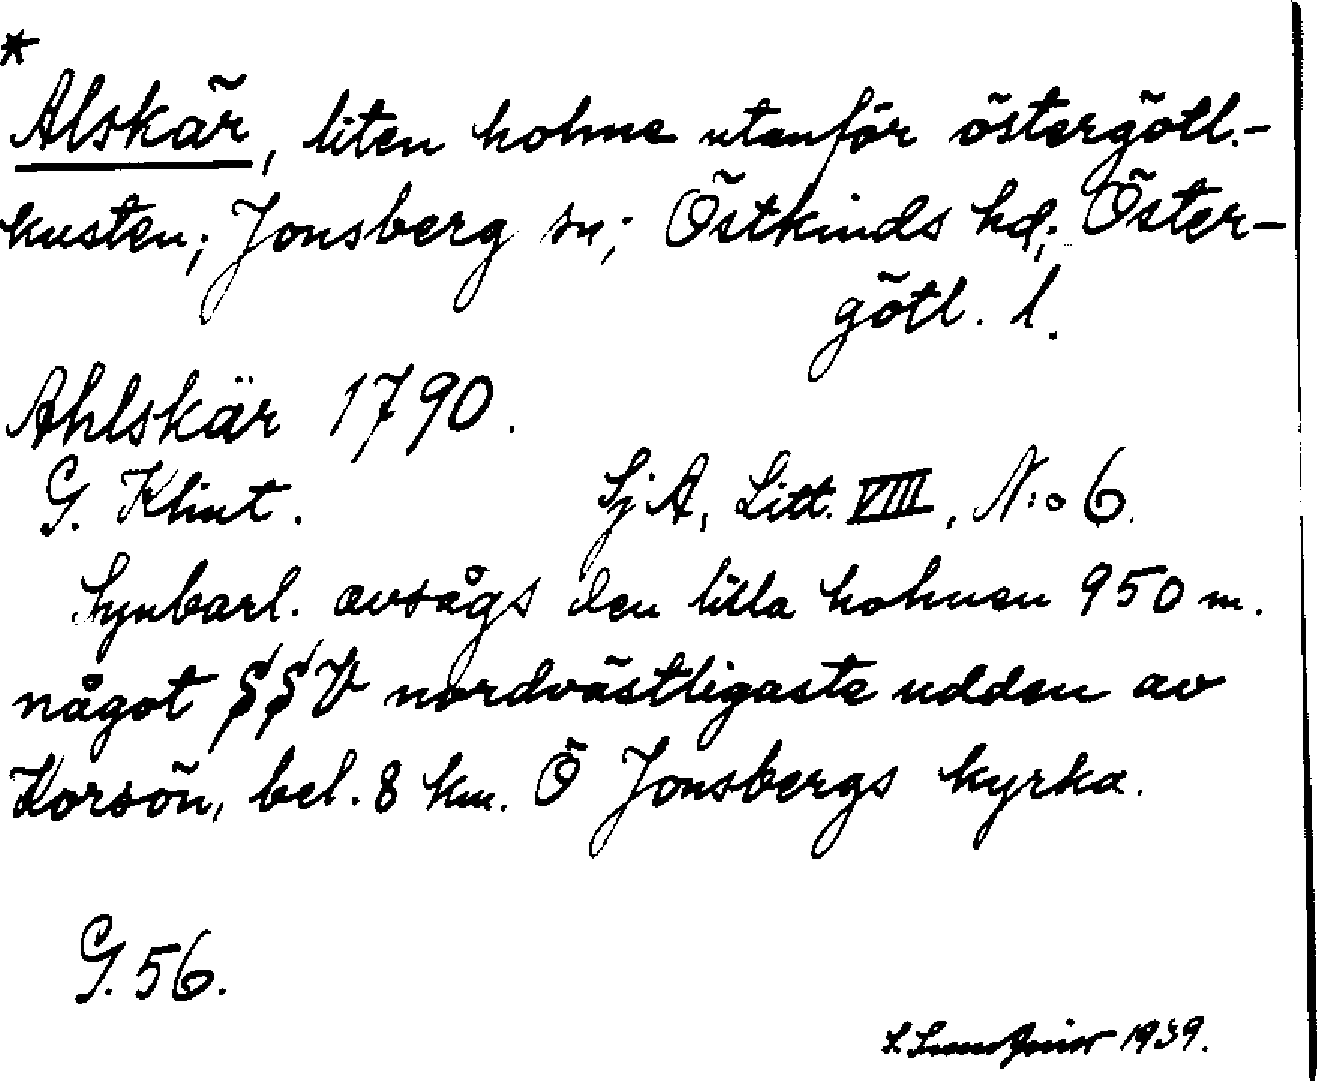 *
Alskär, liten holme utanför östergötl.-
kusten; Jonsberg sn; Östkinds hd; Öster-
götl. l.
Ahlskär 1790.
G. Klint. SjA, Litt. VIII, N:o 6.
Synbarl. avsågs den lilla holmen 950 m.
något SSV nordvästligaste udden av
Korsön, bel. 8 km. Ö Jonsbergs kyrka.
G. 56.
1939.